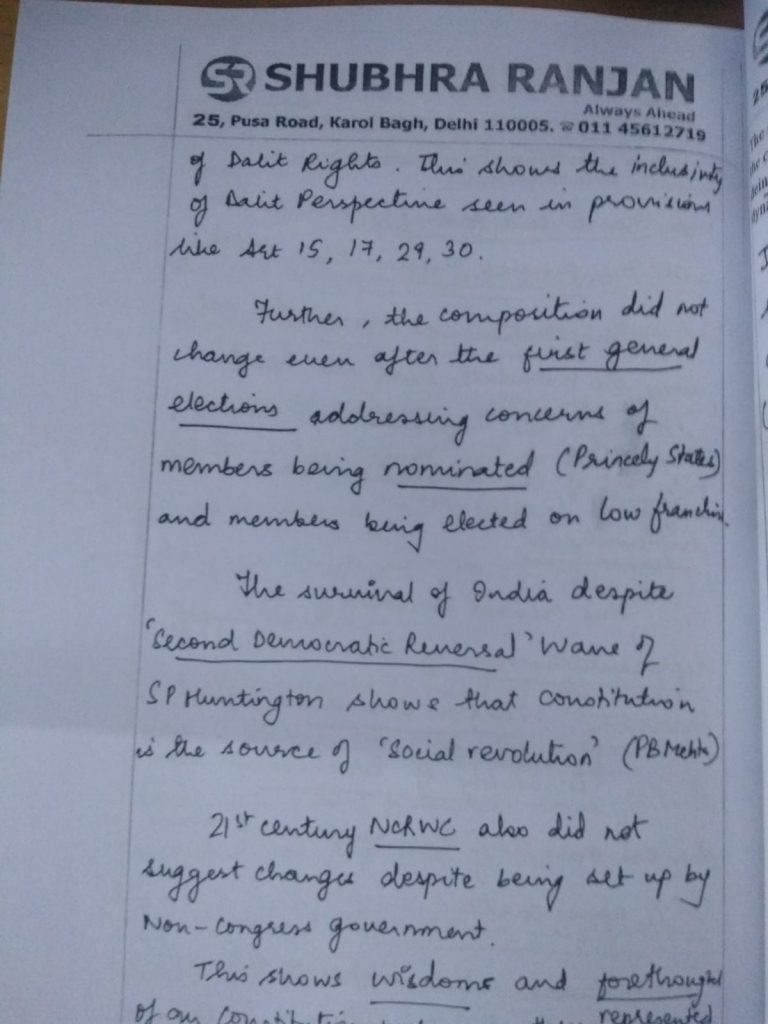 SR SHUBHRA RANJAN
Always Ahead
25, Pusa Road, Karol Bagh, Delhi 110005. ☎ 011 45612719
of Dalit Rights. This shows the inclusivity
of Dalit Perspective seen in provisions
like Art 15, 17, 29, 30.
Further, the composition did not
change even after the first general
elections addressing concerns of
members being nominated (Princely States)
and members being elected on low franchise.
The survival of India despite
'Second Democratic Reversal' Wave of
SP Huntington shows that constitution
is the source of 'social revolution' (PB Mehta)
21st century NCRWC also did not
suggest changes despite being set up by
Non-Congress government.
This shows wisdoms and forethought
of our represented